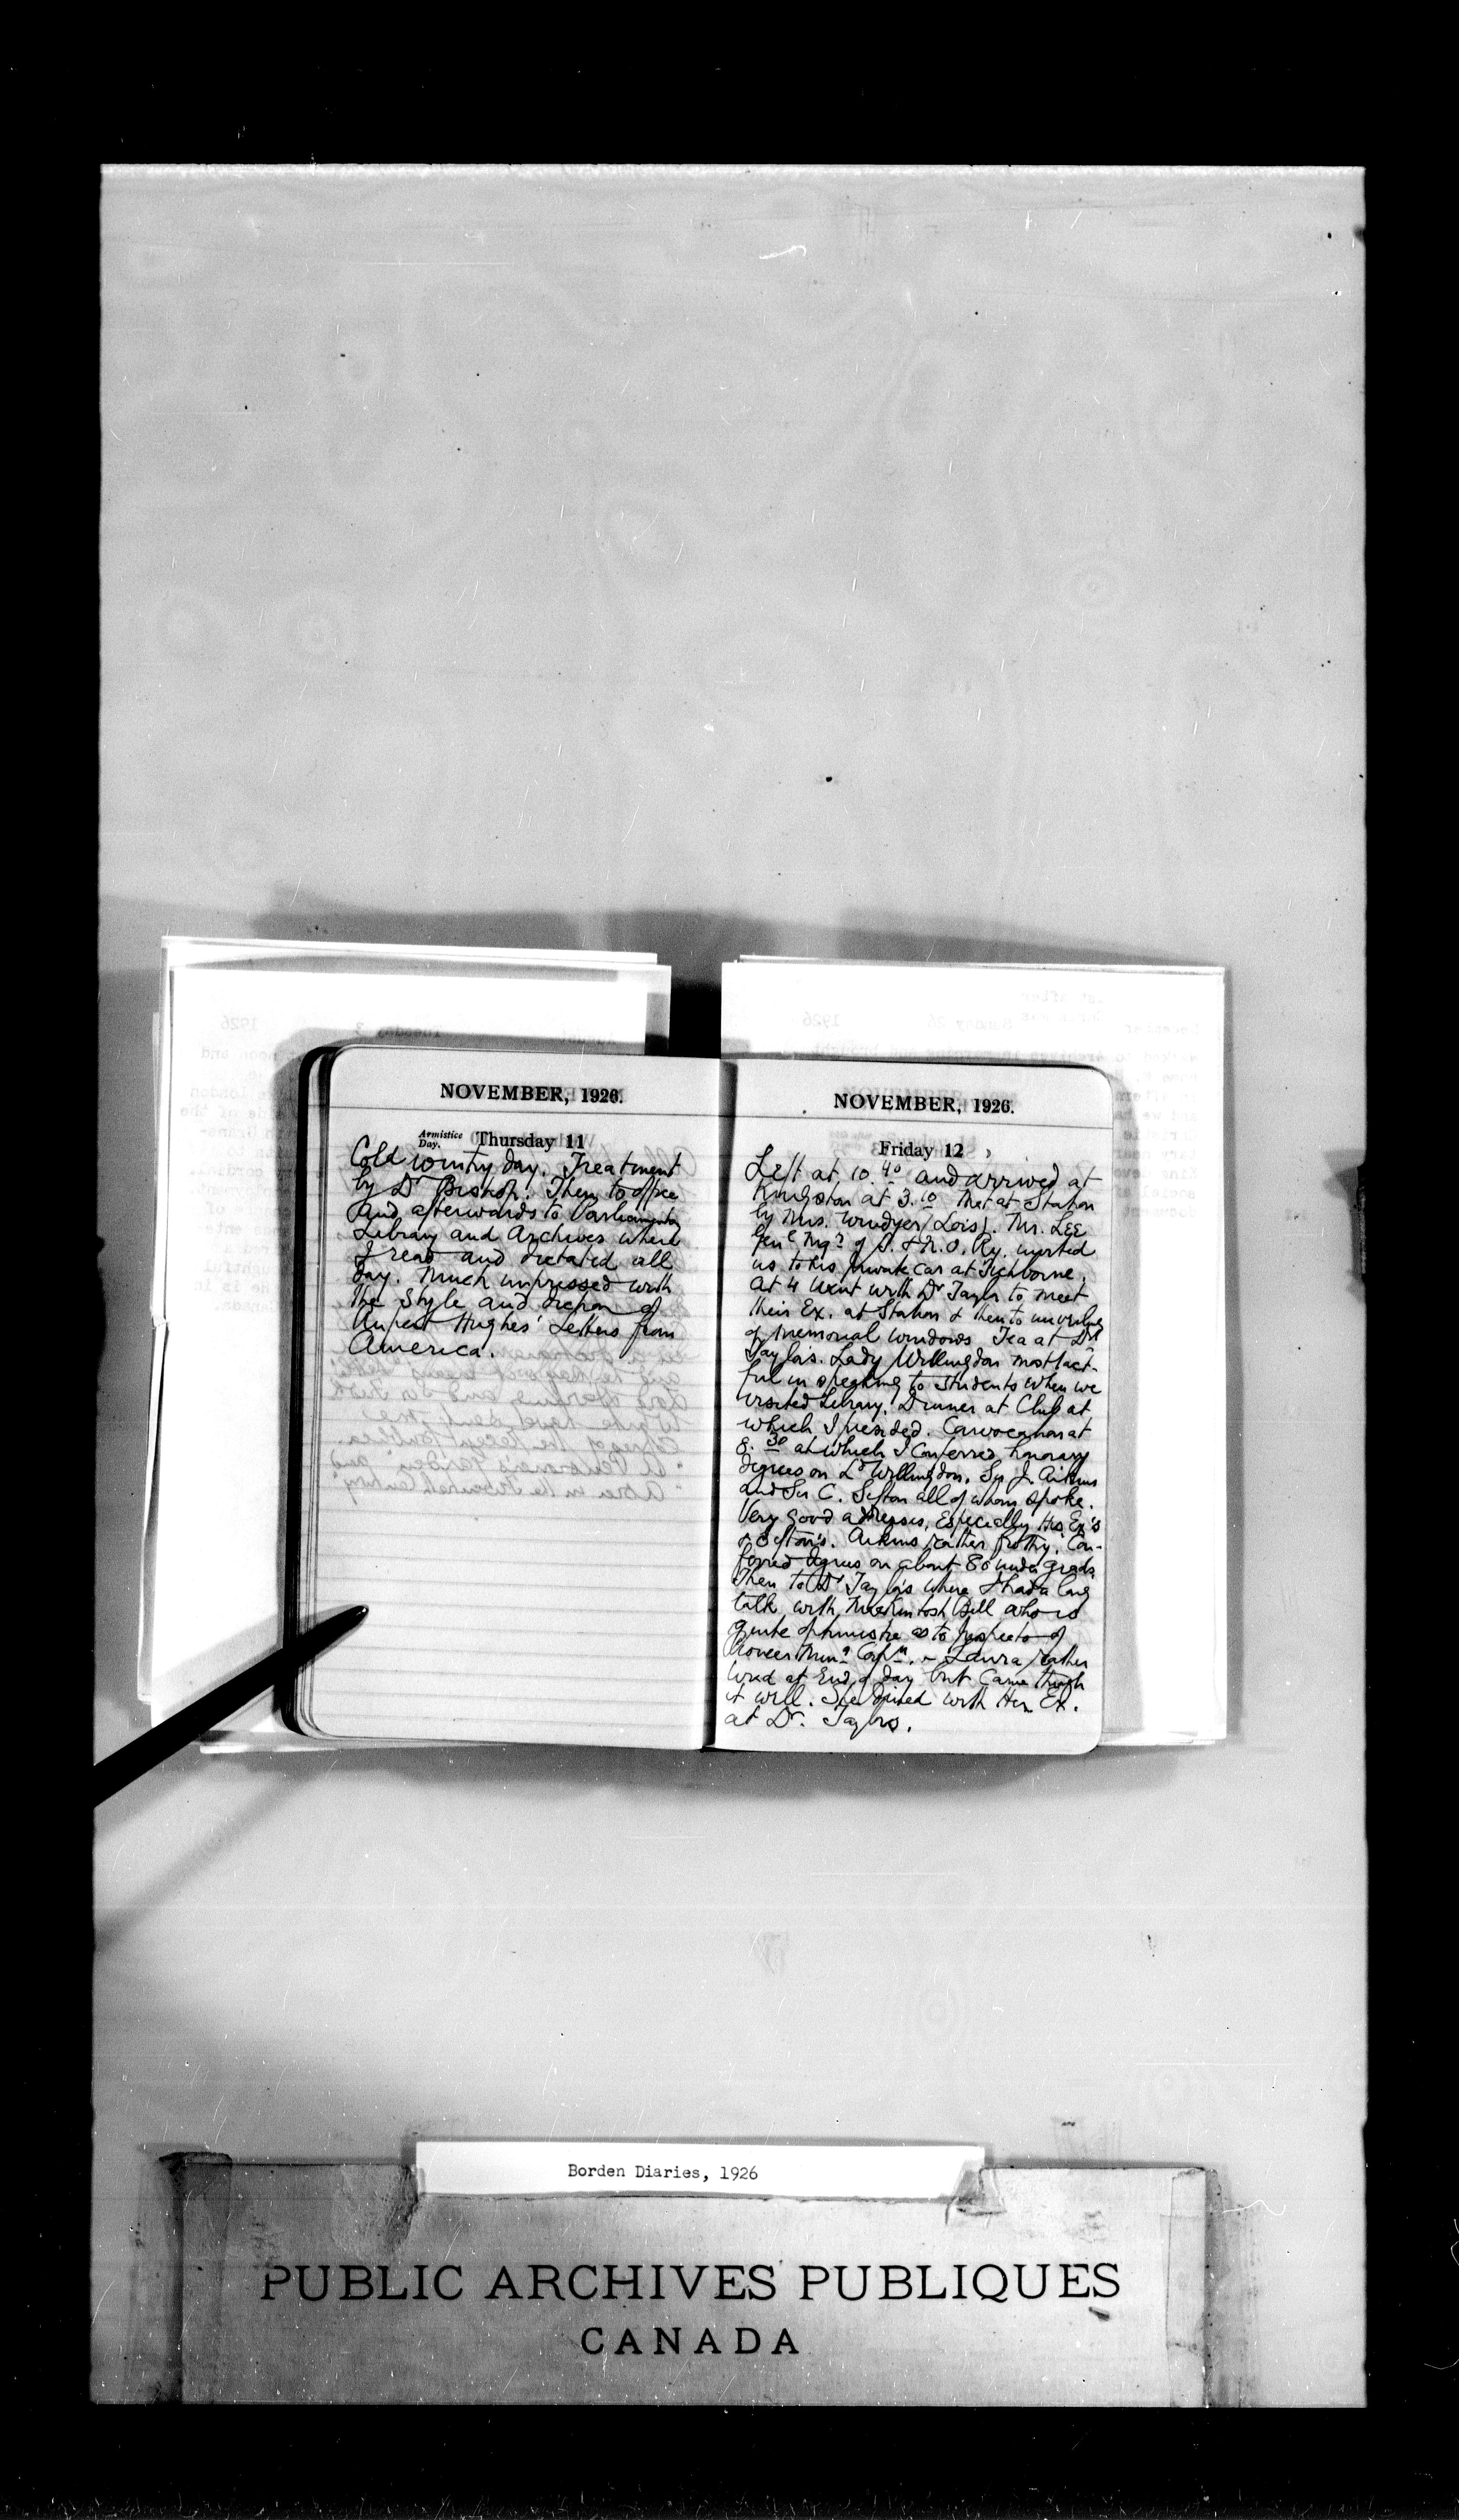 NOVEMBER, 1926.
Armistice Day. Thursday 11
Cold wintry day. Treatment
by Dr Bishop. Then to office
and afterwards to Parliamentary
Library and Archives where
I read and dictated all
day. Much impressed with
the style and diction of
Rupert Hughes' Letters from
America.
NOVEMBER, 1926.
Friday 12
Left at 10.40 and arrived at
Kingston at 3.10 Met at Station
by Mrs. Windyer (Lois). Mr. Lee
Genl Mgr of & N.O. Ry. invited
us to his private car at Tichborne.
At 4 went with Dr Taylor to meet
their Ex. at Station & then to unveiling
of memorial windows. Tea at Dr
Taylor's. Lady Willingdon most tact-
ful in speaking to students when we
visited Library. Dinner at Club at
which I presided. Convocation at
8.30 at which I conferred honorary
degrees on Ld Willingdon, Sir J. Aikins
and Sir C. Sifton all of whom spoke.
Very good addresses, especially His Ex's
& Sifton's. Aikins rather frothy. Con-
ferred degrees on about 80 under grads.
Then to Dr Taylor's where I had a long
talk with Mackintosh Bell who is
quite optimistic as to prospects of
Laura rather
tired at end of day but came through
it well. She dined with Her Ex.
at Dr. Taylors.
Borden Diaries, 1926
PUBLIC ARCHIVES PUBLIQUES
CANADA